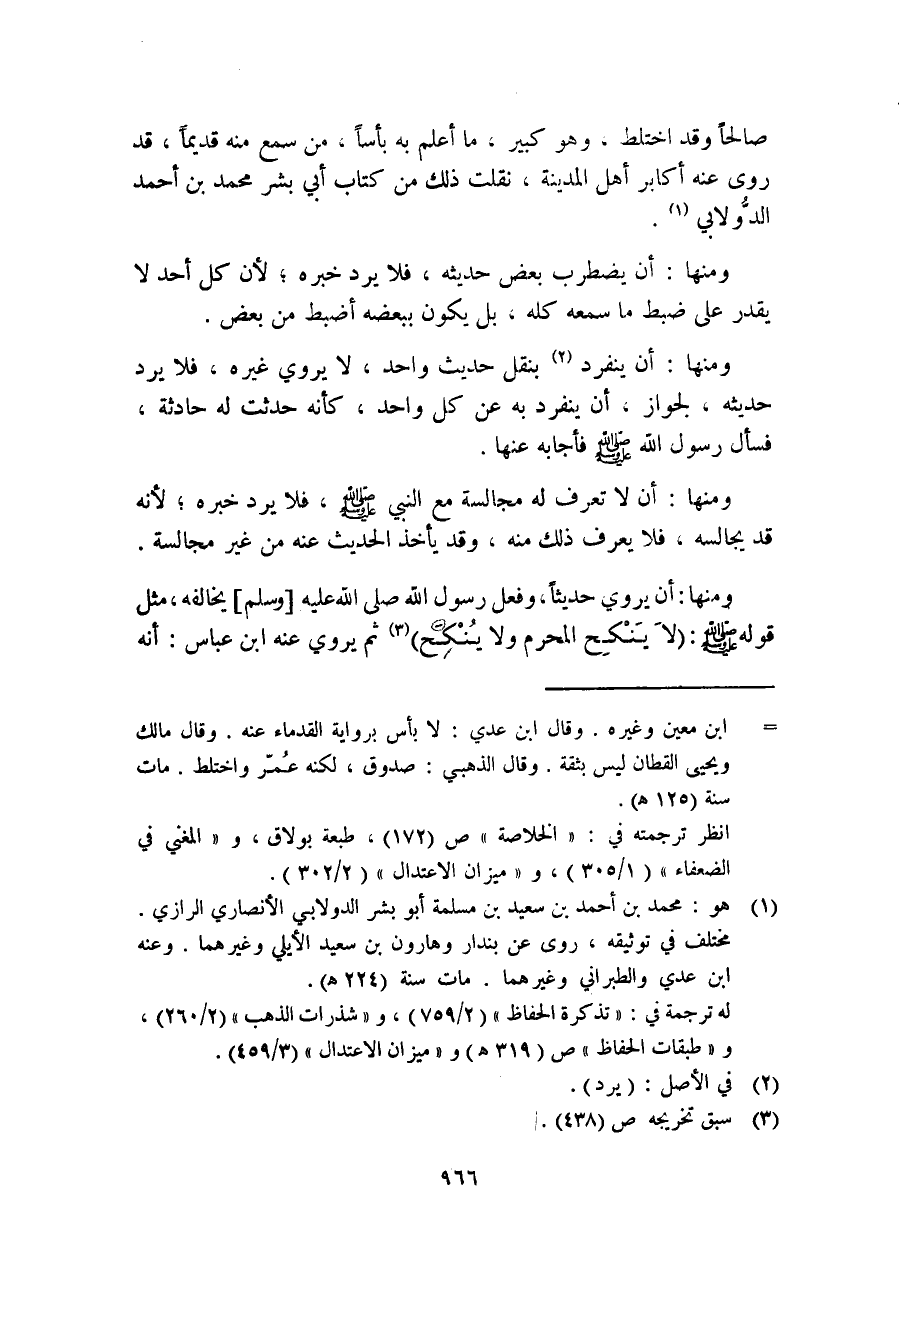 صالحاً وقد اختلط ، وهو كبير ، ما أعلم به بأساً ، من سمع منه قديماً ، قد
روى عنه أكابر أهل المدينة ، نقلت ذلك من كتاب أبي بشر محمد بن أحمد
الدُّولابي (١) .
ومنها : أن يضطرب بعض حديثه ، فلا يرد خبره ؛ لأن كل أحد لا
يقدر على ضبط ما سمعه كله ، بل يكون ببعضه أضبط من بعض .
ومنها : أن ينفرد (٢) بنقل حديث واحد ، لا يروي غيره ، فلا يرد
حديثه ، لجواز ، أن ينفرد به عن كل واحد ، كأنه حدثت له حادثة ،
فسأل رسول الله ﷺ فأجابه عنها .
ومنها : أن لا تعرف له مجالسة مع النبي ﷺ ، فلا يرد خبره ؛ لأنه
قد يجالسه ، فلا يعرف ذلك منه ، وقد يأخذ الحديث عنه من غير مجالسة .
ومنها : أن يروي حديثاً ، وفعل رسول الله صلى الله عليه [وسلم] يخالفه ، مثل
قوله ﷺ : (لاَ يَنْكِح المحرم ولا يُنْكِح) (٣) ثم يروي عنه ابن عباس : أنه
= ابن معين وغيره . وقال ابن عدي : لا بأس برواية القدماء عنه . وقال مالك
ويحيى القطان ليس بثقة . وقال الذهبي : صدوق ، لكنه عُمّر واختلط . مات
سنة (١٢٥ هـ) .
انظر ترجمته في : « الخلاصة » ص (١٧٢) ، طبعة بولاق ، و « المغني في
الضعفاء » ( ٣٠٥/١ ) ، و « ميزان الاعتدال » ( ٣٠٢/٢ ) .
(١) هو : محمد بن أحمد بن سعيد بن مسلمة أبو بشر الدولابي الأنصاري الرازي .
مختلف في توثيقه ، روى عن بندار وهارون بن سعيد الأيلي وغيرهما . وعنه
ابن عدي والطبراني وغيرهما . مات سنة (٢٢٤ هـ) .
له ترجمة في : « تذكرة الحفاظ » (٧٥٩/٢) ، و « شذرات الذهب » (٢٦٠/٢) ،
و « طبقات الحفاظ » ص ( ٣١٩ هـ) و « ميزان الاعتدال » (٤٥٩/٣) .
(٢) في الأصل : ( يرد ) .
(٣) سبق تخريجه ص (٤٣٨) .
٩٦٦